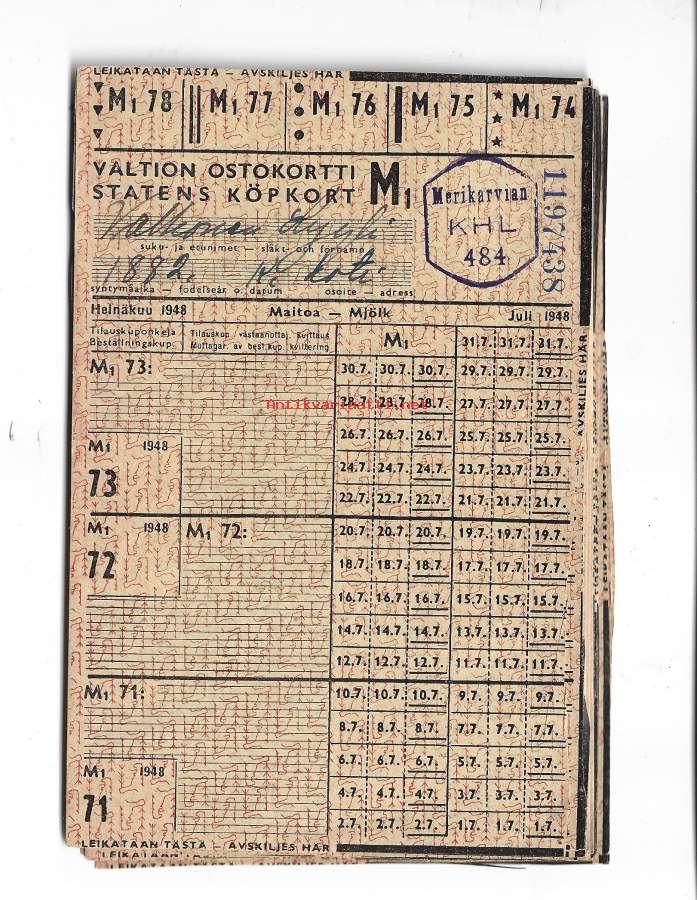 LEIKATAAN TÄSTÄ — AVSKILJES HÄR
M1 78 M1 77 M1 76 M1 75 M1 74
VALTION OSTOKORTTI
STATENS KÖPKORT
M1
Merikarvian
KHL
484
1197438
Valkonen
suku- ja etunimet — släkt- och förnamn
1882.
syntymäaika — födelseår o. datum osoite — adress
Heinäkuu 1948 Maitoa — Mjölk Juli 1948
Tilauskuponkeja
Beställningskup.
Tilauskup. vastaanottaj. kuittaus
Mottagar. av best.kup. kvittering
M1 31.7. 31.7. 31.7.
M1 73:
30.7. 30.7. 30.7. 29.7. 29.7. 29.7.
28.7. 28.7. 28.7. 27.7. 27.7. 27.7.
Antikvariaatti.net
26.7. 26.7. 26.7. 25.7. 25.7. 25.7.
M1 1948
73
24.7. 24.7. 24.7. 23.7. 23.7. 23.7.
22.7. 22.7. 22.7. 21.7. 21.7. 21.7.
M1 1948
72
M1 72:
20.7. 20.7. 20.7. 19.7. 19.7. 19.7.
18.7. 18.7. 18.7. 17.7. 17.7. 17.7.
16.7. 16.7. 16.7. 15.7. 15.7. 15.7.
14.7. 14.7. 14.7. 13.7. 13.7. 13.7.
12.7. 12.7. 12.7. 11.7. 11.7. 11.7.
M1 71:
10.7. 10.7. 10.7. 9.7. 9.7. 9.7.
8.7. 8.7. 8.7. 7.7. 7.7. 7.7.
6.7. 6.7. 6.7. 5.7. 5.7. 5.7.
M1 1948
71
4.7. 4.7. 4.7. 3.7. 3.7. 3.7.
2.7. 2.7. 2.7. 1.7. 1.7. 1.7.
LEIKATAAN TÄSTÄ — AVSKILJES HÄR
AVSKILJES HÄR
LEIKATAAN TÄSTÄ